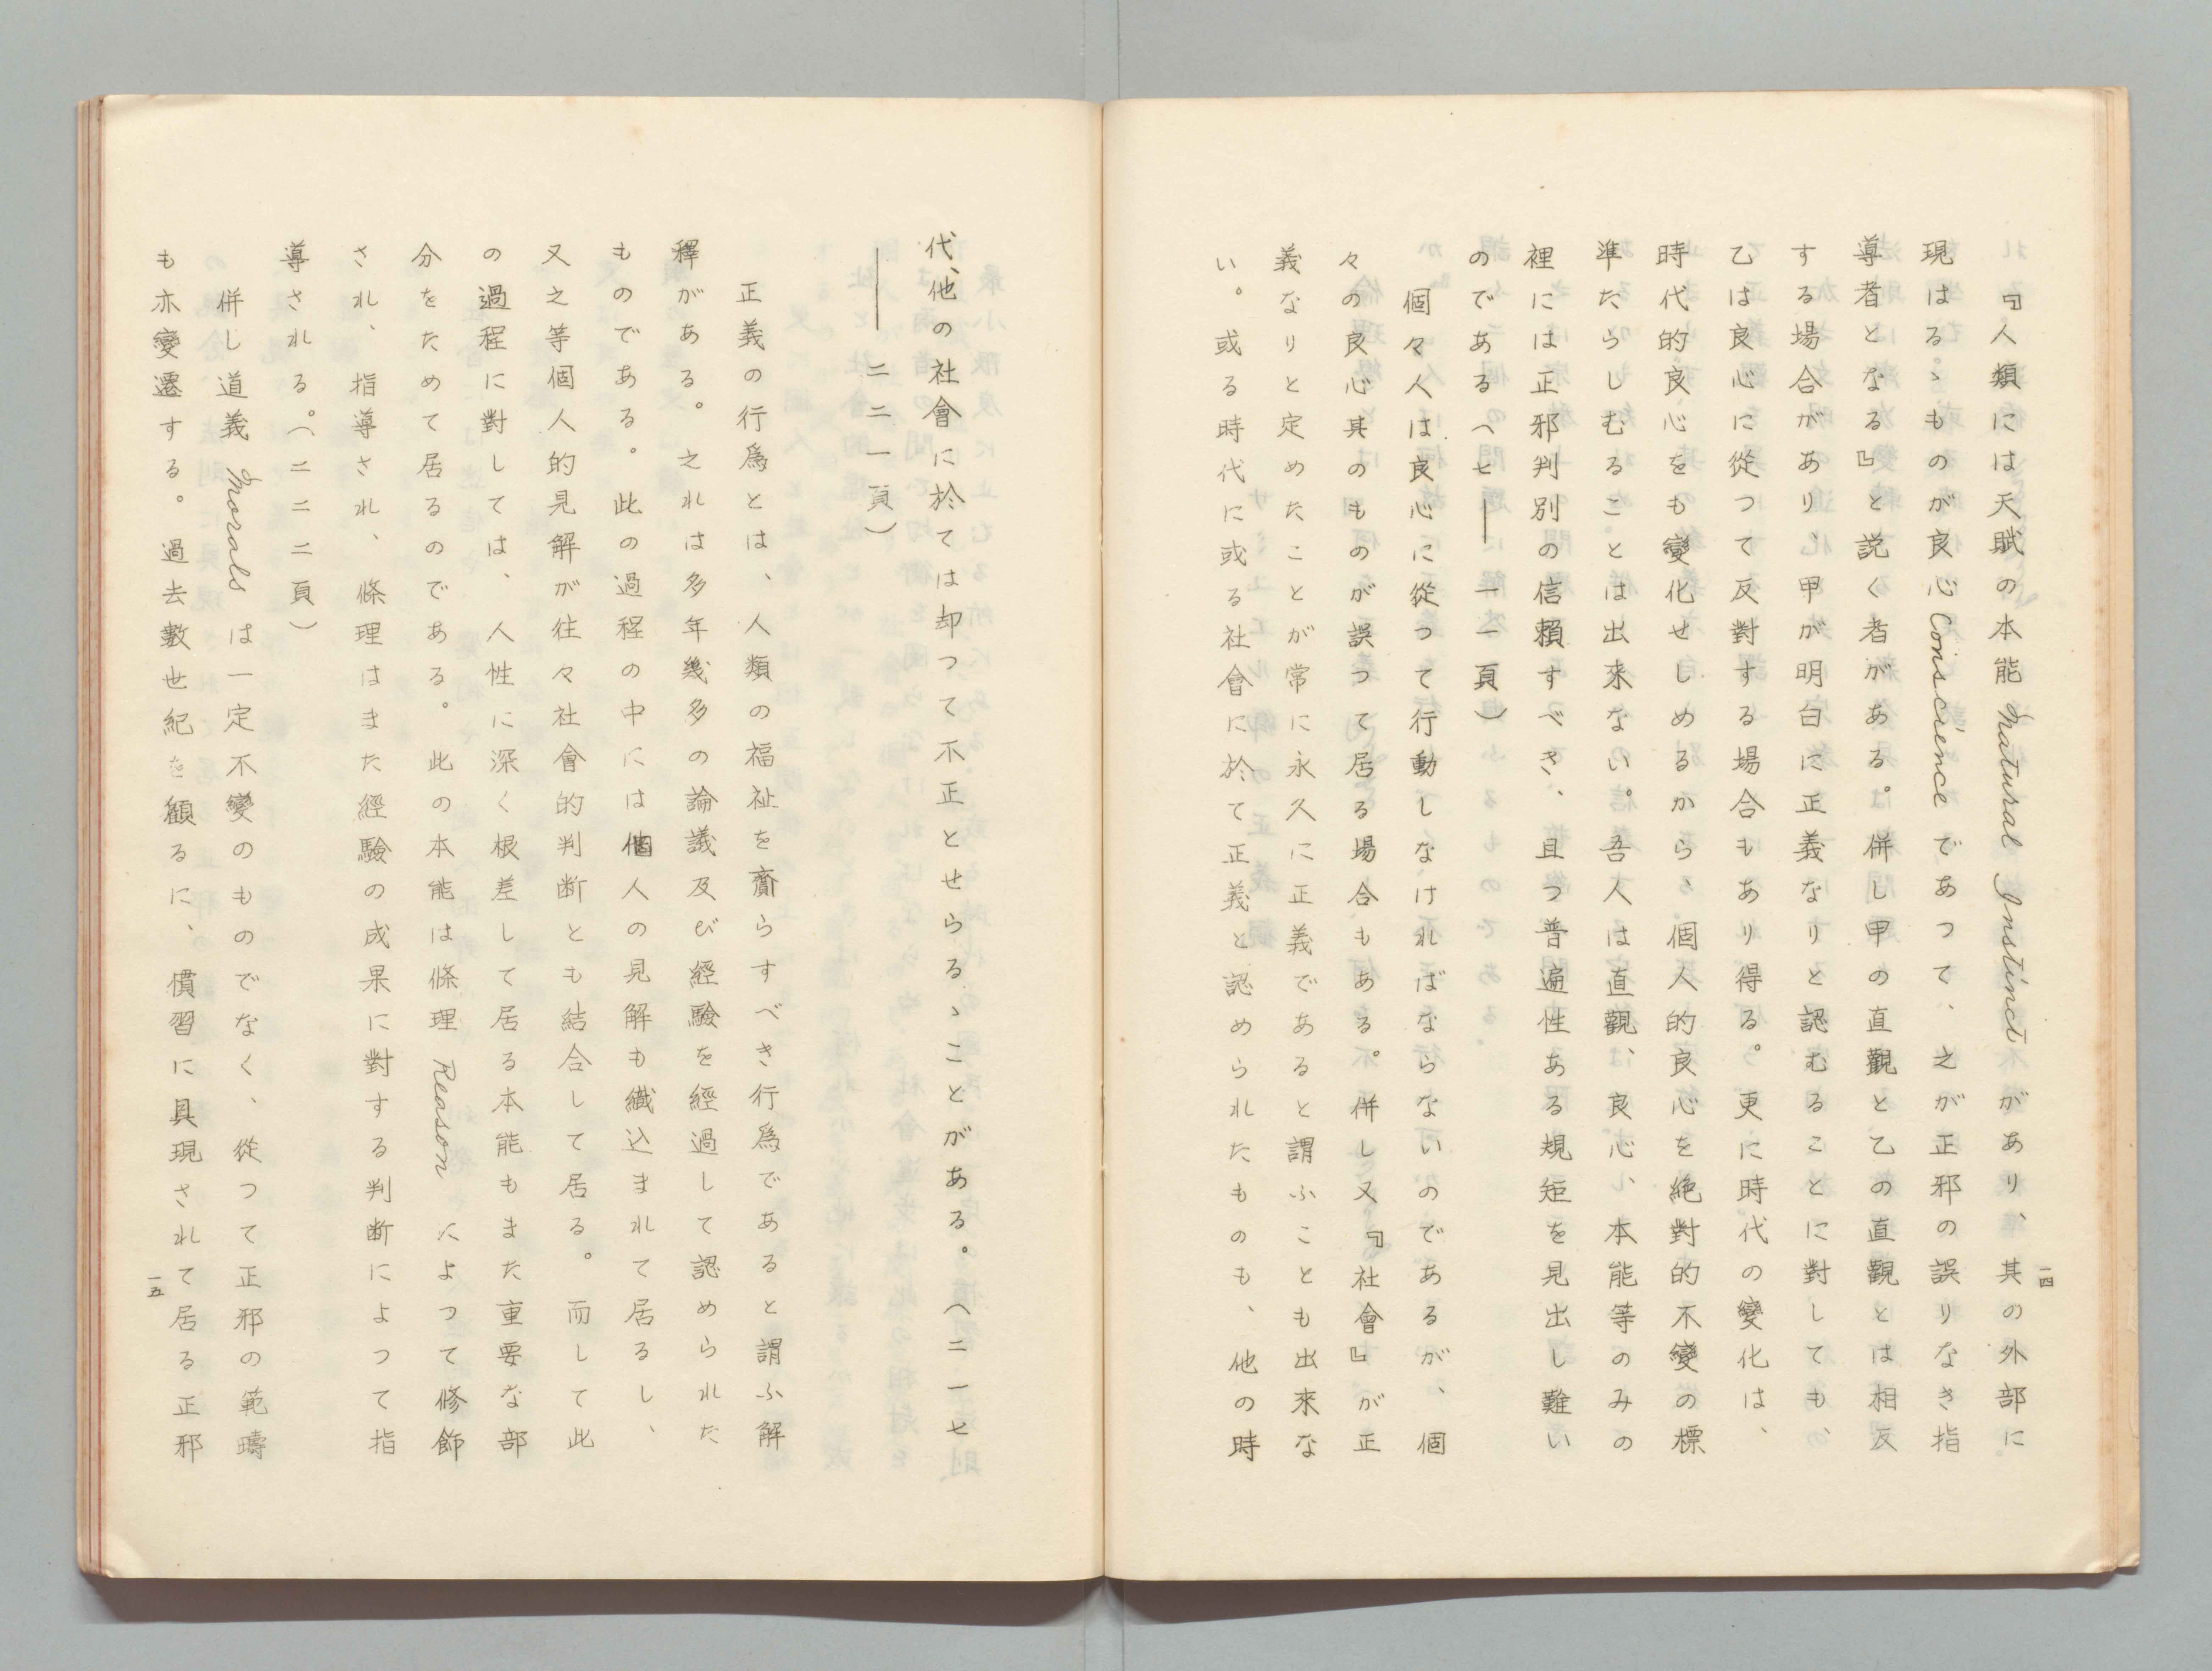 一四
『人類には天賦の本能 Natural Instinct があり、其の外部に
現はるゝものが良心 Conscience であつて、之が正邪の誤りなき指
導者となる』と説く者がある。併し甲の直觀と乙の直觀とは相反
する場合があり、甲が明白に正義なりと認むることに對しても、
乙は良心に從つて反對する場合もあり得る。更に時代の變化は、
時代的良心をも變化せしめるから、個人的良心を絶對的不變の標
準たらしむることは出來ない。吾人は直觀、良心、本能等のみの
裡には正邪判別の信賴すべき、且つ普遍性ある規矩を見出し難い
のである（七——一一頁）
個々人は良心に從つて行動しなければならないのであるが、個
々の良心其のものが誤つて居る場合もある。併し又『社會』が正
義なりと定めたことが常に永久に正義であると謂ふことも出來な
い。或る時代に或る社會に於て正義と認められたものも、他の時
代、他の社會に於ては却つて不正とせらるゝことがある。（二一七
——二二一頁）
正義の行爲とは、人類の福祉を齎らすべき行爲であると謂ふ解
釋がある。之れは多年幾多の論議及び經驗を經過して認められた
ものである。此の過程の中には個人の見解も織込まれて居るし、
又之等個人的見解が往々社會的判断とも結合して居る。而して此
の過程に對しては、人性に深く根差して居る本能もまた重要な部
分をためて居るのである。此の本能は條理 Reason によつて修飾
され、指導され、條理はまた經驗の成果に對する判断によつて指
導される。（二二二頁）
併し道義 Morals は一定不變のものでなく、從つて正邪の範疇
も亦變遷する。過去數世紀を顧るに、慣習に具現されて居る正邪
一五